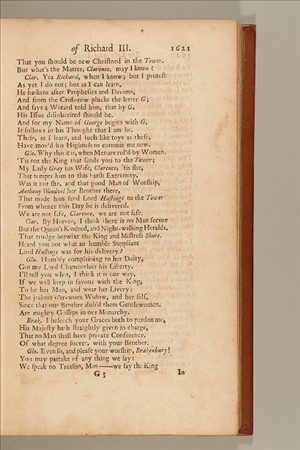 of Richard III. 1621
That you should be new Christned in the Tower.
But what's the Matter, Clarence, may I know?
Clar. Yea Richard, when I know; but I protest
As yet I do not; but as I can learn,
He harkens after Prophesies and Dreams,
And from the Cross-row plucks the letter G;
And says a Wizard told him, that by G,
His Issue disinherited should be.
And for my Name of George begins with G,
It follows in his Thought that I am he.
These, as I learn, and such like toys as these,
Have mov'd his Highness to commit me now.
Glo. Why this it is, when Men are rul'd by Women.
'Tis not the King that sends you to the Tower;
My Lady Gray his Wife, Clarence, 'tis she,
That tempts him to this harsh Extremity.
Was it not she, and that good Man of Worship,
Anthony Woodvil her Brother there,
That made him send Lord Hastings to the Tower
From whence this Day he is delivered.
We are not safe, Clarence, we are not safe.
Clar. By Heaven, I think there is no Man secure
But the Queen's Kindred, and Night-walking Heralds,
That trudge betwixt the King and Mistress Shore.
Heard you not what an humble Suppliant
Lord Hastings was for his delivery?
Glo. Humbly complaining to her Deity,
Got my Lord Chamberlain his Liberty.
I'll tell you what, I think it is our way,
If we will keep in favour with the King,
To be her Men, and wear her Livery;
The jealous o'er-worn Widow, and her self,
Since that our Brother dub'd them Gentlewomen,
Are mighty Gossips in our Monarchy.
Brak. I beseech your Graces both to pardon me,
His Majesty hath straightly given in charge,
That no Man shall have private Conference,
Of what degree soever, with your Brother.
Glo. Even so, and please your worship, Brakenbury!
You may partake of any thing we say:
We speak no Treason, Man——we say the King
G 3 In